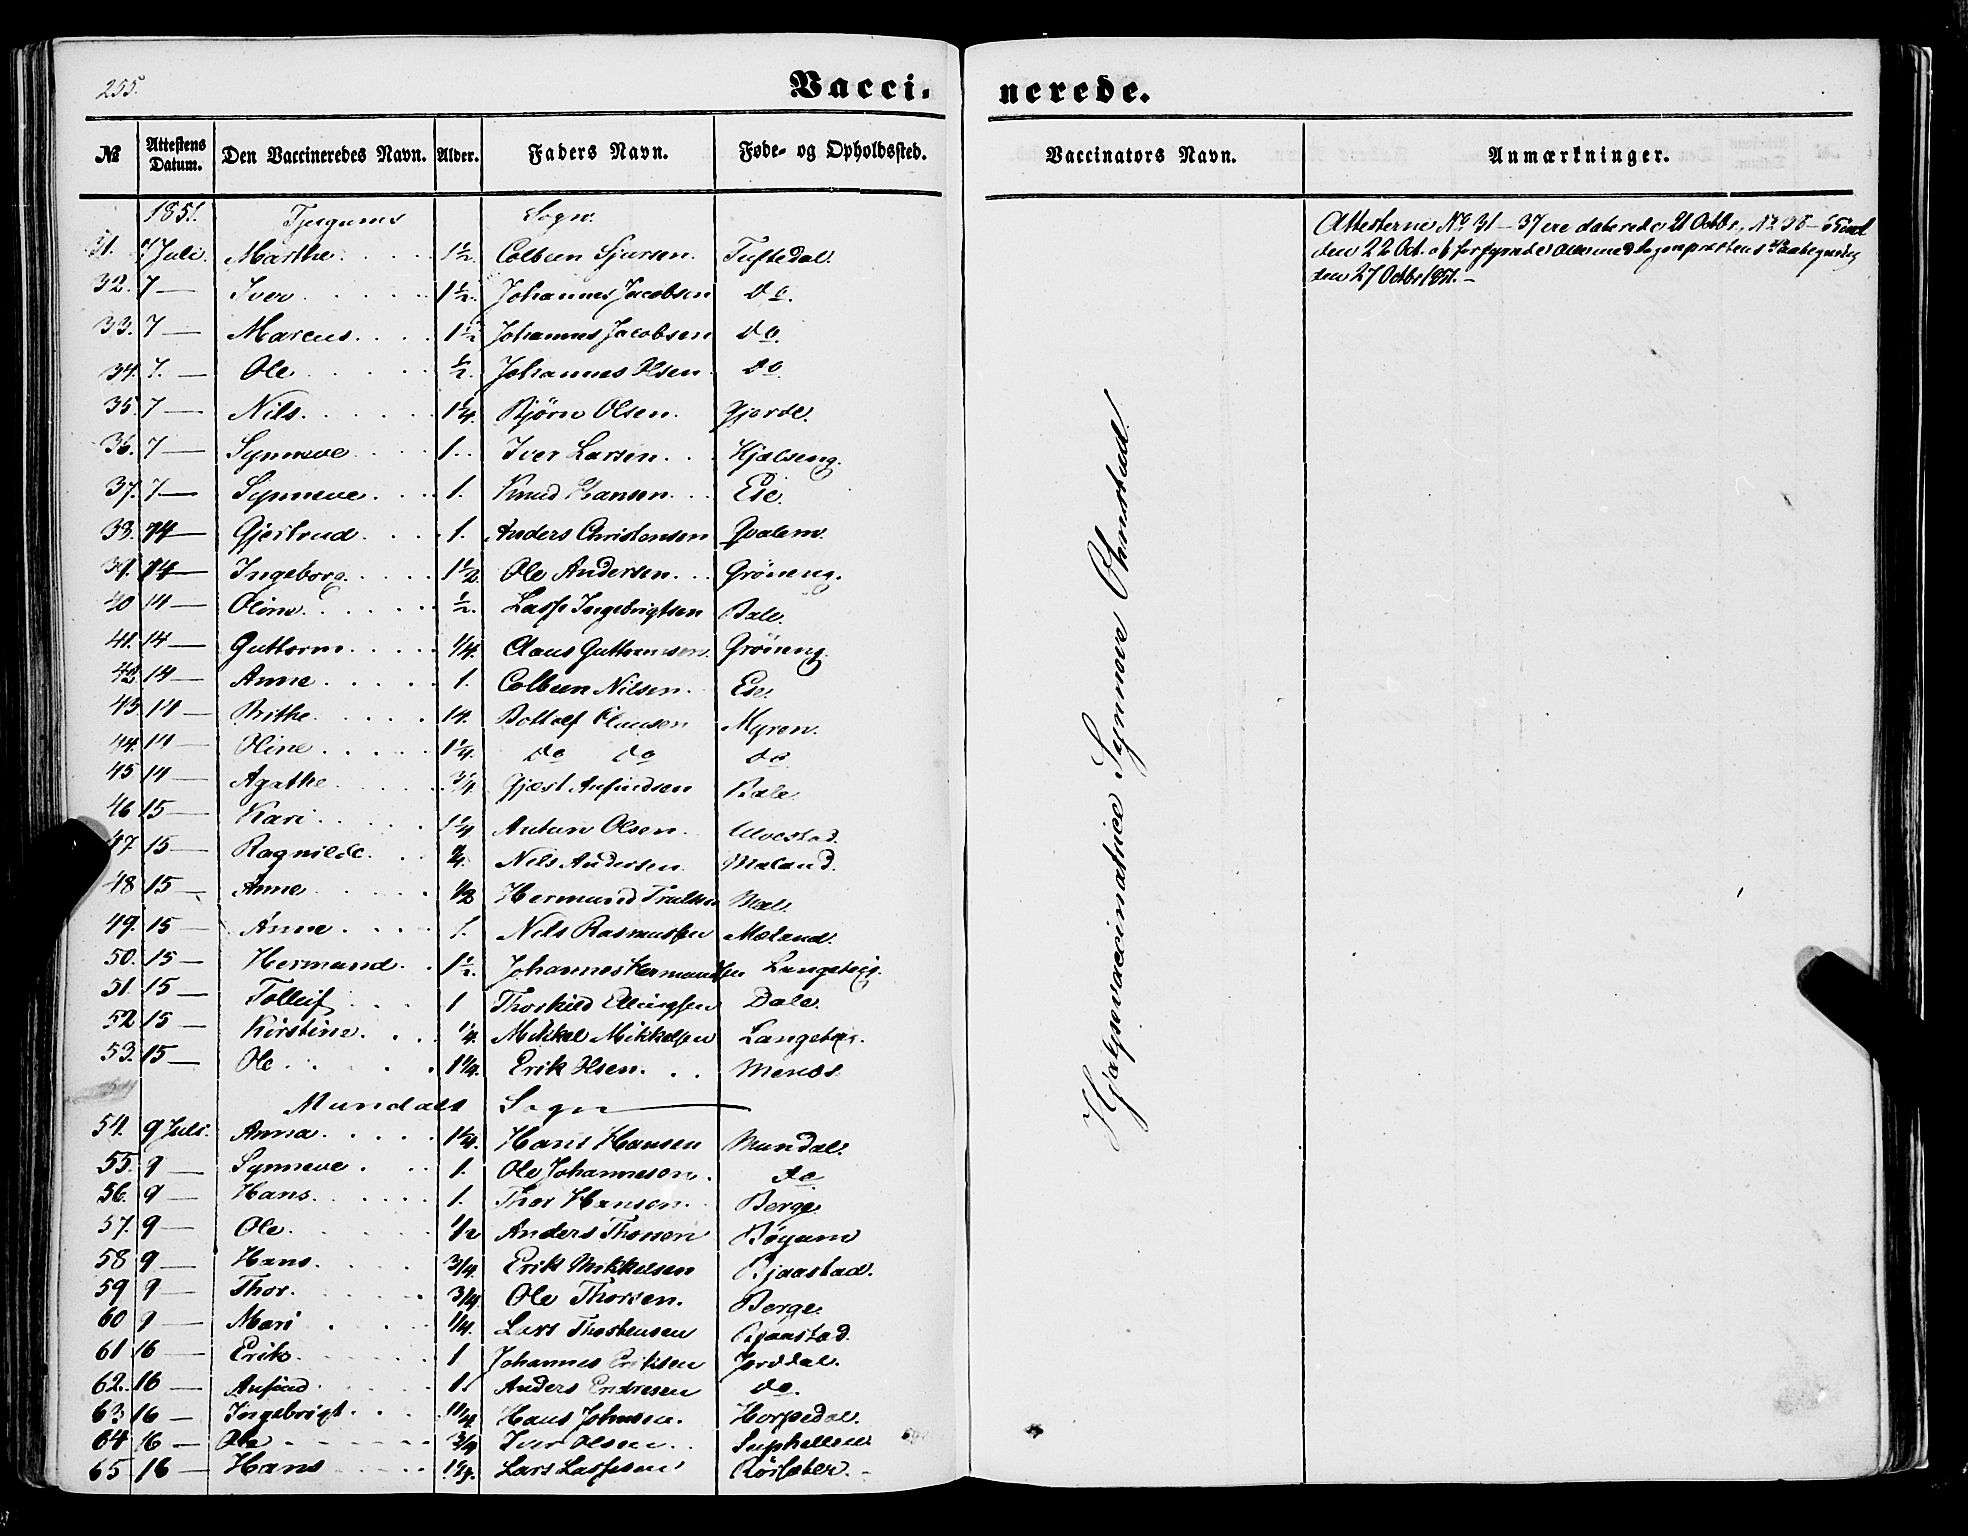 255.
Vacci-
nerede.
№ Attestens Datum. Den Vaccineredes Navn. Alder. Faders Navn. Føde- og Opholdssted. Vaccinators Navn. Anmærkninger.
1851. Tjugums Sogn.
31. 7 Juli. Marthe 1½ Colbein Sjursen. Tuftedal.
32. 7 — Iver 1½ Johannes Jacobsen do.
33. 7 — Marcus 1½ Johannes Jacobsen do.
34. 7. — Ole ½ Johannes Olsen do
35. 7 — Nils. 1¼ Bjørn Olsen. Gjerde.
36. 7 — Synneve 1. Iver Larsen. Hjælseng.
37. 7 — Synneve 1. Knud Hansen Ese.
38. 14 — Gjertrud 1. Anders Christensen Qvalem.
39. 14 — Ingeborg. 1½ Ole Andersen. Grøneng.
40 14 — Oline. ½. Lasse Ingebrigtsen Bale.
41. 14 — Guttorm ¼. Claus Guttormsen. Grøneng.
42 14 — Anne 1. Colbein Nilsen. Ese.
43. 14 — Brithe 1¼. Bottolf Clausen Myren.
44. 14 — Oline 1¼. do do do
45 14 — Agathe ¾. Gjest Anfindsen Bale.
46 15 — Kari 1¼ Anton Olsen. Ulvestad.
47. 15 — Ragnilde. Nils Andersen Mæland.
48 15 — Anne ½ Hermund Trulsen Bale.
49. 15 — Anne 1. Nils Rasmussen Mæland.
50. 15 — Hermund. 1½. Johannes Hermundsen Langeteig.
51. 15 — Tolleif 1 Thorkild Ellingsen Dale.
52 15 — Kirstine. ¼. Mikkel Mikkelsen Langeteig.
53. 15 — Ole 1¼. Erik Olsen. Menæs
Mundals Sogn —
54. 9 Juli. Anna 1¼. Hans Hansen Mundal.
55. 9 — Synneve 1. Ole Johannesen. do
56. 9 — Hans. 1. Thor Hansen. Berge
57. 9 — Ole. ½ Anders Thorsen Bøyum
58 9 — Hans. ¾. Erik Mikkelsen Bjaastad.
59 9 — Thor. ¾ Ole Thorsen. Berge.
60 9 — Mari ¼. Lars Thorstensen Bjaastad.
61 16 — Erik 1 Johannes Eriksen Jorddal.
62. 16 — Anfind 1. Anders Endresen do.
63 16 — Ingebrigt 1¼. Hans Johnsen. Horpedal.
64 16 — Ole ¾ Iver Olsen Suphellen
65 16 — Hans 1½. Lars Lassesen Rørsæter. —
Hjælpevaccinatrice Synneve Ohnstad.
Attesterne No 31 – 37 ere daterede 21 Octbr, No 38 – 65 ind
den 22 Oct. og forsynede alle med Sognepræstens Paategning
den 27 Octbr 1851. —